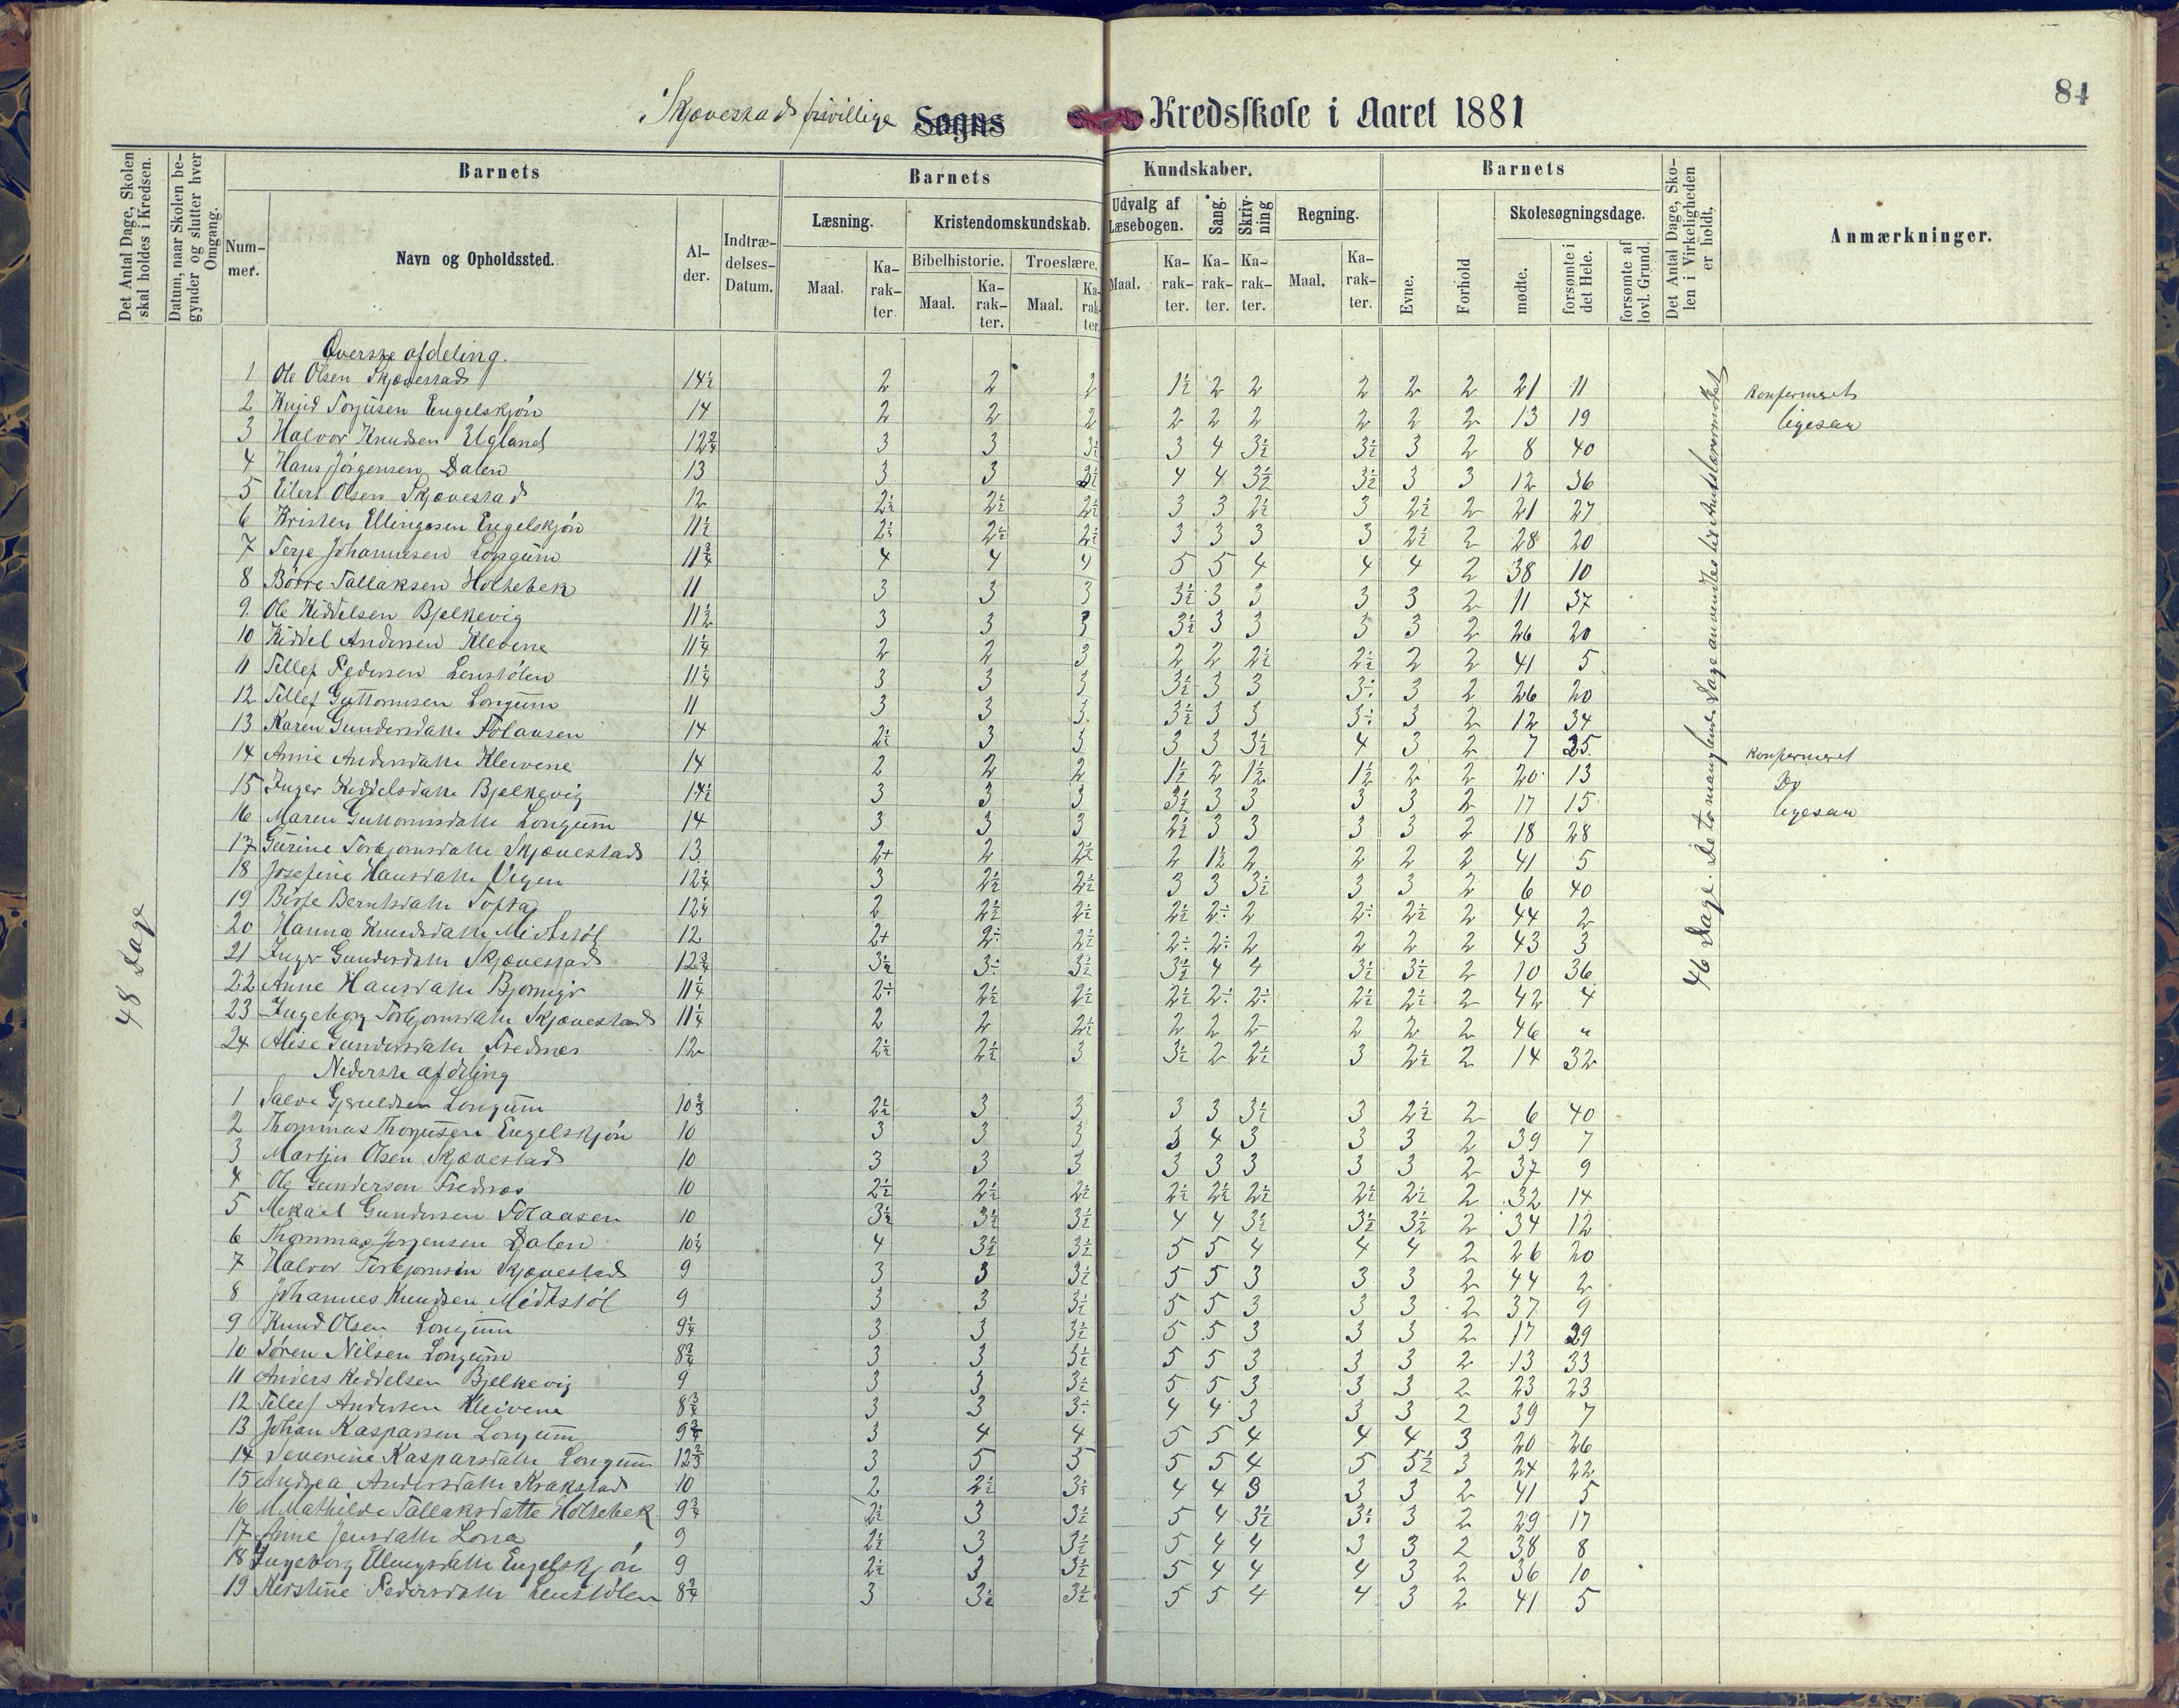 84
Skjævestads frivillige Sogns Kredsskole i Aaret 1881
Det Antal Dage, Skolen skal holdes i Kredsen.
Datum, naar Skolen begynder og slutter hver Omgang.
Barnets
Nummer.
Navn og Opholdssted.
Alder.
Indtrædelses-Datum.
Barnets Kundskaber.
Læsning.
Maal.
Karakter
Kristendomskundskab.
Bibelhistorie.
Maal.
Karakter.
Troeslære.
Maal.
Karakter.
Udvalg af Læsebogen.
Maal.
Karakter.
Sang.
Karakter.
Skrivning
Karakter.
Regning.
Maal.
Karakter.
Barnets
Evne.
Forhold
Skolesøgningsdage.
mødte.
forsømte i det Hele.
forsømte af lovl. Grund.
Det Antal Dage, Skolen i Virkeligheden er holdt.
Anmærkninger.
48 Dage
46 Dage. De to manglende Dage anvendtes til Amtslærermødet
Øverste afdeling.
1 Ole Olsen Skjævestad 14½ 2 2 2 1½ 2 2 2 2 2 21 11 Konfirmeret
2 Knud Torjusen Engelskjøn 14 2 2 2 2 2 2 2 2 2 13 19 ligesaa
3 Halvor Knudsen Ugland 12¾ 3 3 3½ 3 4 3½ 3½ 3 2 8 40
4 Hans Jørgensen Dalen 13 3 3 3½ 4 4 3½ 3½ 3 3 12 36
5 Eilert Olsen Skjævestad 12 2½ 2½ 2½ 3 3 2½ 3 2½ 2 21 27
6 Kristen Ellingsen Engelskjøn 11½ 2½ 2½ 2½ 3 3 3 3 2½ 2 28 20
7 Terje Johannesen Longum 11¾ 4 4 4 5 5 4 4 4 2 38 10
8 Børre Tallaksen Holtebek 11 3 3 3 3½ 3 3 3 3 2 11 37
9 Ole Kiddelsen Bjelkevig 11½ 3 3 3 3½ 3 3 3 3 2 26 20
10 Kiddel Andersen Klevene 11¼ 2 2 3 2 2 2½ 2½ 2 2 41 5
11 Tellef Pedersen Lenstølen 11¼ 3 3 3 3½ 3 3 3÷ 3 2 26 20
12 Tellef Guttormsen Longum 11 3 3 3 3½ 3 3 3÷ 3 2 12 34
13 Karen Gundersdatte Solaasen 14 2½ 3 3 3 3 3½ 4 3 2 7 25
14 Anne Andersdatte Kleivene 14 2 2 2 1½ 2 1½ 1½ 2 2 20 13 Konfirmeret
15 Inger Kiddelsdatte Bjelkevig 14½ 3 3 3 3½ 3 3 3 3 2 17 15 Do
16 Maren Guttormsdatte Longum 14 3 3 3 2½ 3 3 3 3 2 18 28 ligesaa
17 Gurine Torbjornsdatte Skjævestad 13 2+ 2 2½ 2 1½ 2 2 2 2 41 5
18 Josefine Hansdatte Vegen 12¼ 3 2½ 2½ 3 3 3½ 3 3 2 6 40
19 Berntsdatte 12¼ 2 2½ 2½ 2½ 2÷ 2 2÷ 2½ 2 44 2
20 Hanna Knudsdatte Midtstøl 12 2+ 2÷ 2½ 2÷ 2÷ 2 2 2 2 43 3
21 Inger Gundersdatte Skjævestad 12¾ 3½ 3÷ 3½ 3½ 4 4 3½ 3½ 2 10 36
22 Anne Hansdatte 11¼ 2÷ 2½ 2½ 2½ 2÷ 2÷ 2½ 2½ 2 42 4
23 Ingeborg Torbjornsdatte Skjævestad 11¼ 2 2 2½ 2 2 2 2 2 2 46 "
24 Alise Gundersdatte Frednes 12 2½ 2½ 3 3½ 2 2½ 3 2½ 2 14 32
Nederste afdeling
1 Salve Gjeruldsen Longum 10⅔ 2½ 3 3 3 3 3½ 3 2½ 2 6 40
2 Thommas Thorjusen Engelskjøn 10 3 3 3 3 4 3 3 3 2 39 7
3 Martin Olsen Skjævestad 10 3 3 3 3 3 3 3 3 2 37 9
4 Ole Gundersen Frednes 10 2½ 2½ 2½ 2½ 2½ 2½ 2½ 2½ 2 32 14
5 Mekael Gundersen Solaasen 10 3½ 3½ 3½ 4 4 3½ 3½ 3½ 2 34 12
6 Thommas Jorgensen Dalen 10¼ 4 3½ 3½ 5 5 4 4 4 2 26 20
7 Halvor Torbjornsen Skjævestad 9 3 3 3½ 5 5 3 3 3 2 44 2
8 Johannes Knudsen Midtstøl 9 3 3 3½ 5 5 3 3 3 2 37 9
9 Knud Olsen Longum 9¼ 3 3 3½ 5 5 3 3 3 2 17 29
10 Søren Nilsen Longum 8¾ 3 3 3½ 5 5 3 3 3 2 13 33
11 Anders Kiddelsen Bjelkevig 9 3 3 3½ 5 5 3 3 3 2 23 23
12 Tellef Andersen Kleivene 8¾ 3 3 3÷ 4 4 3 3 3 2 39 7
13 Johan Kasparsen Longum 9¾ 3 4 4 5 5 4 4 4 3 20 26
14 Severine Kasparsdatte Longum 12⅔ 3 5 5 5 5 4 5 5½ 3 24 22
15 Andrea Andersdatte Krakstad 10 2 2½ 3÷ 4 4 3 3 3 2 41 5
16 Mathilde Tallaksdatte Holtebek 9¾ 2½ 3 3½ 5 4 3½ 3÷ 3 2 29 17
17 Anne Jensdatte Lona 9 2½ 3 3½ 5 4 4 3 3 2 38 8
18 Ingeborg Ellingsdatte Engelskjøn 9 2½ 3 3½ 5 4 4 4 3 2 36 10
19 Kerstine Pedersdatte Lenstølen 8¾ 3 3½ 3½ 5 5 4 4 3 2 41 5